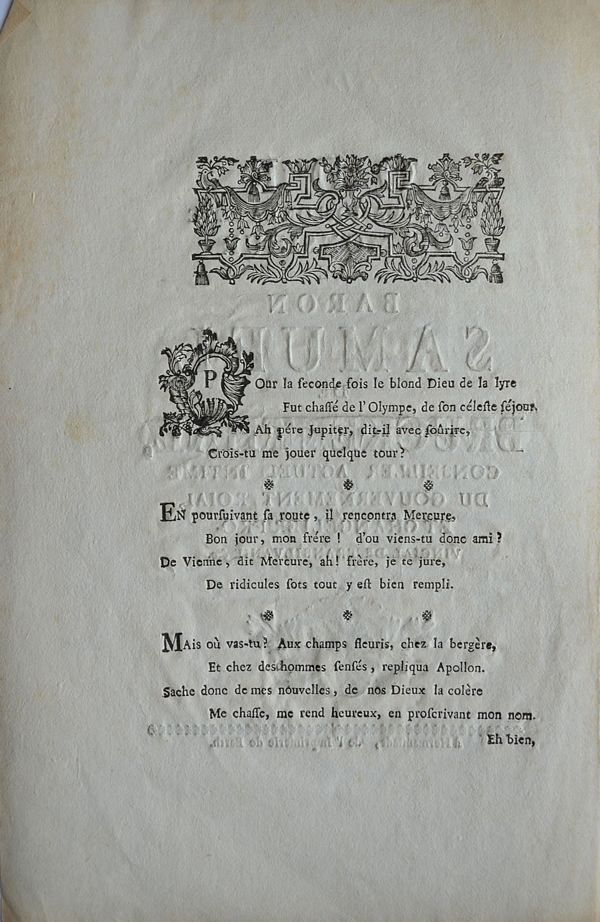 POur la ſeconde fois le blond Dieu de la lyre
Fut chaſſé de l'Olympe, de ſon céleſte ſéjour,
Ah pére Jupiter, dit-il avec ſoûrire,
Crois-tu me jouer quelque tour?
EN pourſuivant ſa route, il rencontra Mercure,
Bon jour, mon frére! d'ou viens-tu donc ami?
De Vienne, dit Mercure, ah! frère, je te jure,
De ridicules ſots tout y eſt bien rempli.
MAis où vas-tu? Aux champs fleuris, chez la bergère,
Et chez des hommes ſenſés, repliqua Apollon.
Sache donc de mes nouvelles, de nos Dieux la colère
Me chaſſe, me rend heureux, en proſcrivant mon nom.
Eh bien,
BARON
SAMUEL
CONSEILLER ACTUEL INTIME
DU GOUVERNEMENT ROIAL